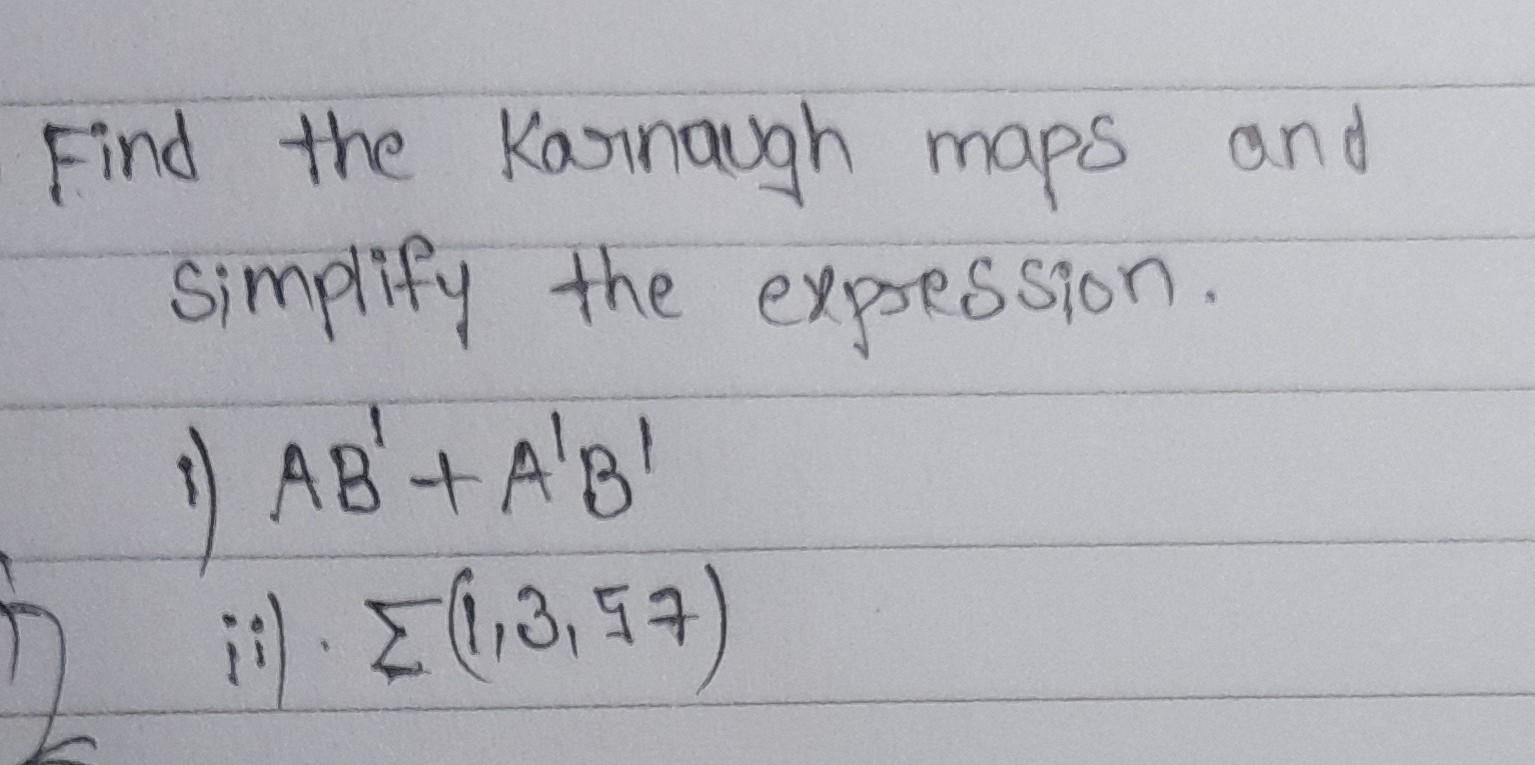 Find the Karnaugh maps and
simplify the expression.
i) AB' + A'B'
ii). Σ(1,3,57)